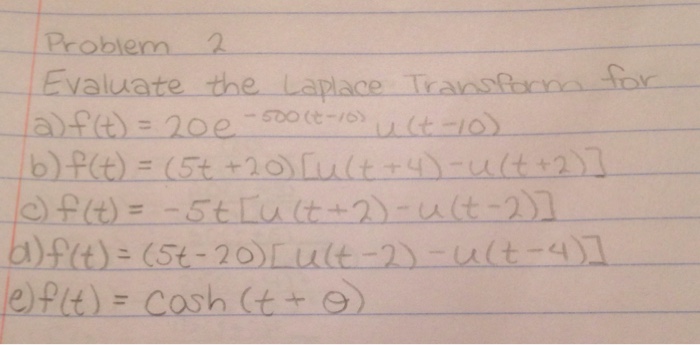 Problem 2
Evaluate the Laplace Transform for
a) f(t) = 20e^-500(t-10) u(t-10)
b) f(t) = (5t+20)[u(t+4)-u(t+2)]
c) f(t) = -5t[u(t+2)-u(t-2)]
d) f(t) = (5t-20)[u(t-2)-u(t-4)]
e) f(t) = cosh(t+θ)